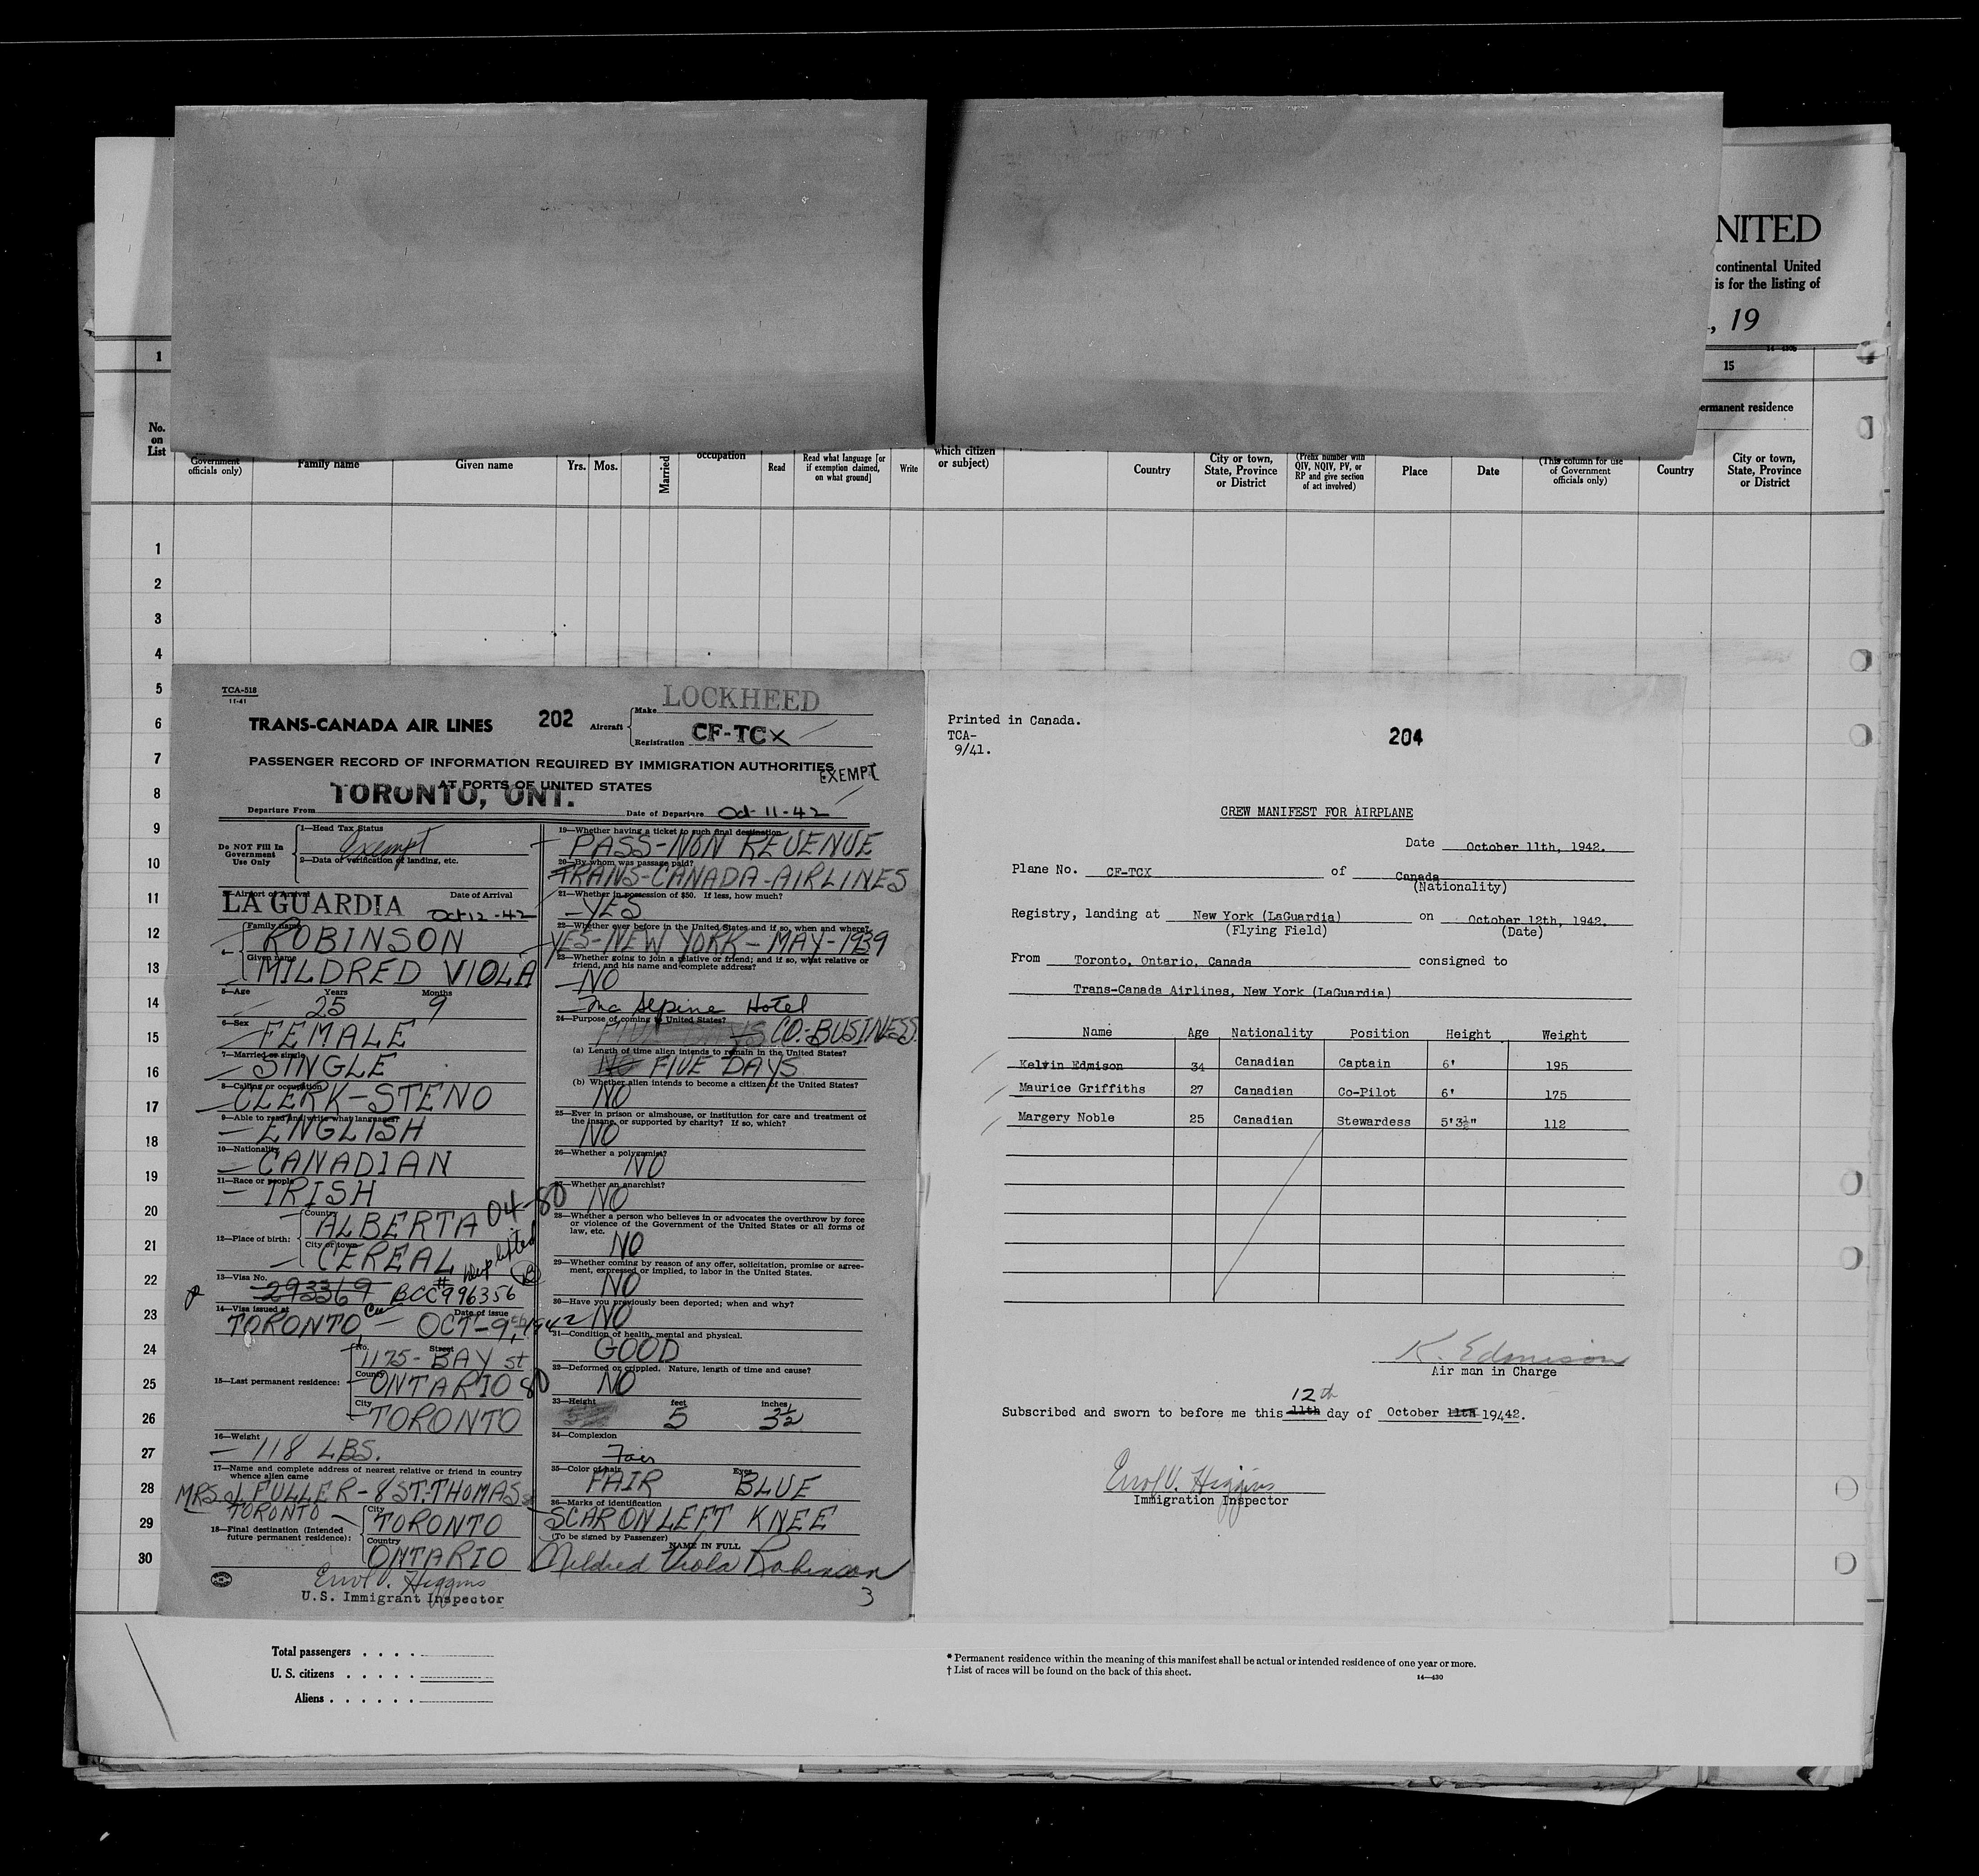 NITED
continental United
is for the listing of
, 19
1
15
ermanent residence
No.
on
List
Government
officials only)
Family name
Given name
Yrs.
Mos.
Married
occupation
Read
Read what language [or
if exemption claimed,
on what ground]
Write
which citizen
or subject)
Country
City or town,
State, Province
or District
(Prefix number with
QIV, NQIV, PV, or
RP and give section
of act involved)
Place
Date
(This column for use
of Government
officials only)
Country
City or town,
State, Province
or District
1
2
3
4
5
6
7
8
9
10
11
12
13
14
15
16
17
18
19
20
21
22
23
24
25
26
27
28
29
30
TCA-518
11-41
LOCKHEED
TRANS-CANADA AIR LINES
202
Aircraft
Make
Registration CF-TCX
PASSENGER RECORD OF INFORMATION REQUIRED BY IMMIGRATION AUTHORITIES
AT PORTS OF UNITED STATES
EXEMPT
TORONTO, ONT.
Departure From
Date of Departure Oct-11-42
Do NOT Fill In
Government
Use Only
1—Head Tax Status
Exempt
2—Data of verification of landing, etc.
3—Airport of Arrival
Date of Arrival
LA GUARDIA Oct 12-42
Family name
ROBINSON
Given name
MILDRED VIOLA
5—Age Years Months
25 9
6—Sex
FEMALE
7—Married or single
SINGLE
8—Calling or occupation
CLERK-STENO
9—Able to read and write what languages?
ENGLISH
10—Nationality
CANADIAN
11—Race or people
IRISH
04-80
12—Place of birth:
Country
ALBERTA
City or town
CEREAL
13—Visa No.
293369 BCC# 996356
14—Visa issued at
Date of issue
TORONTO, OCT-9, 1942
15—Last permanent residence:
No. Street
1175-BAY st
County
ONTARIO 80
City
TORONTO
16—Weight
118 LBS.
17—Name and complete address of nearest relative or friend in country
whence alien came
MRS. J FULLER-8 ST. THOMAS
TORONTO
18—Final destination (Intended
future permanent residence):
City
TORONTO
Country
ONTARIO
Errol V. Higgins
U.S. Immigrant Inspector
19—Whether having a ticket to such final destination
PASS-NON REVENUE
20—By whom was passage paid?
TRANS-CANADA-AIRLINES
21—Whether in possession of $50. If less, how much?
YES
22—Whether ever before in the United States and if so, when and where?
YES-NEW YORK-MAY-1939
23—Whether going to join a relative or friend; and if so, what relative or
friend, and his name and complete address?
NO
Mc Alpine Hotel
24—Purpose of coming to United States?
CO. BUSINESS.
(a) Length of time alien intends to remain in the United States?
NO FIVE DAYS
(b) Whether alien intends to become a citizen of the United States?
NO
25—Ever in prison or almshouse, or institution for care and treatment of
the insane, or supported by charity? If so, which?
NO
26—Whether a polygamist?
NO
27—Whether an anarchist?
NO
28—Whether a person who believes in or advocates the overthrow by force
or violence of the Government of the United States or all forms of
law, etc.
NO
29—Whether coming by reason of any offer, solicitation, promise or agree-
ment, expressed or implied, to labor in the United States.
NO
30—Have you previously been deported; when and why?
NO
31—Condition of health, mental and physical.
GOOD
32—Deformed or crippled. Nature, length of time and cause?
NO
33—Height feet inches
5 3½
34—Complexion
Fair
35—Color of hair Eyes
FAIR BLUE
36—Marks of identification
SCAR ON LEFT KNEE
(To be signed by Passenger)
NAME IN FULL
Mildred Viola Robinson
3
Printed in Canada.
TCA-
9/41.
204
CREW MANIFEST FOR AIRPLANE
Date October 11th, 1942.
Plane No. CF-TCX of Canada
(Nationality)
Registry, landing at New York (LaGuardia) on October 12th, 1942.
(Flying Field) (Date)
From Toronto, Ontario, Canada consigned to
Trans-Canada Airlines, New York (LaGuardia)
Name Age Nationality Position Height Weight
Kelvin Edmison 34 Canadian Captain 6' 195
Maurice Griffiths 27 Canadian Co-Pilot 6' 175
Margery Noble 25 Canadian Stewardess 5'3½" 112
K. Edmison
Air man in Charge
12th
Subscribed and sworn to before me this 11th day of October 11th 1942.
Errol V. Higgins
Immigration Inspector
Total passengers . . . .
U. S. citizens . . . . .
Aliens . . . . . .
* Permanent residence within the meaning of this manifest shall be actual or intended residence of one year or more.
† List of races will be found on the back of this sheet.
14—430